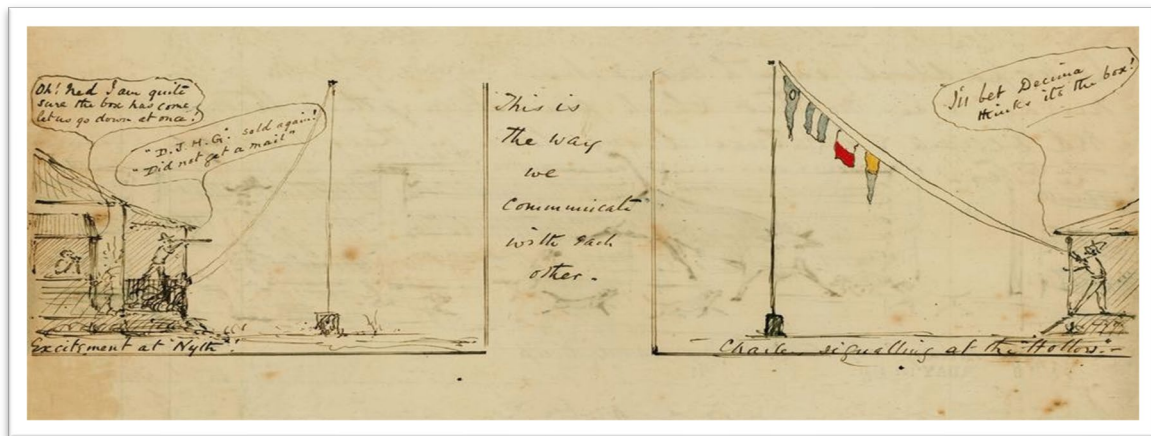 Oh! Ned I am quite
sure the box has come
let us go down at once!
"D.J.H.G." sold again!
"Did not get a mail"
Excitement at "Nyth"!
This is
the way
we
communicate
with each
other.
I'll bet Decima
thinks its the box!
Charles signalling at the "Hollow".